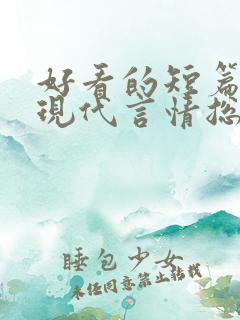 好看的短篇
现代言情总
睡包少女
未经同意禁止转载